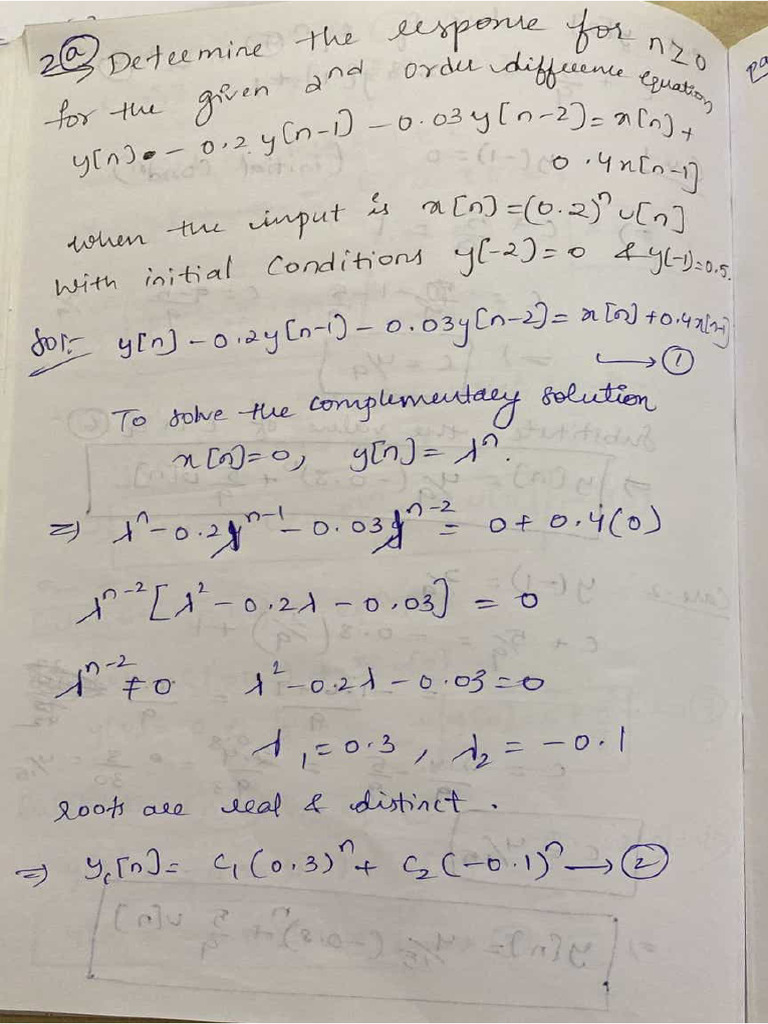 2(a) Determine the response for n≥0
for the given 2nd order difference equation
y[n] - 0.2 y[n-1) - 0.03 y[n-2] = x[n] +
0.4x[n-1]
when the input is x[n] = (0.2)ⁿ u[n]
with initial conditions y[-2)=0 & y(-1)=0.5.
Sol:- y[n] - 0.2y[n-1) - 0.03y[n-2] = x[n] + 0.4x[n-1]
→ ①
To solve the complementary solution
x[n]=0, y[n] = λⁿ.
⇒ λⁿ - 0.2λⁿ⁻¹ - 0.03λⁿ⁻² = 0 + 0.4(0)
λⁿ⁻² [λ² - 0.2λ - 0.03] = 0
λⁿ⁻² ≠ 0 λ² - 0.2λ - 0.03 = 0
λ₁ = 0.3, λ₂ = -0.1
roots are real & distinct.
⇒ y꜀[n] = C₁(0.3)ⁿ + C₂(-0.1)ⁿ → ②